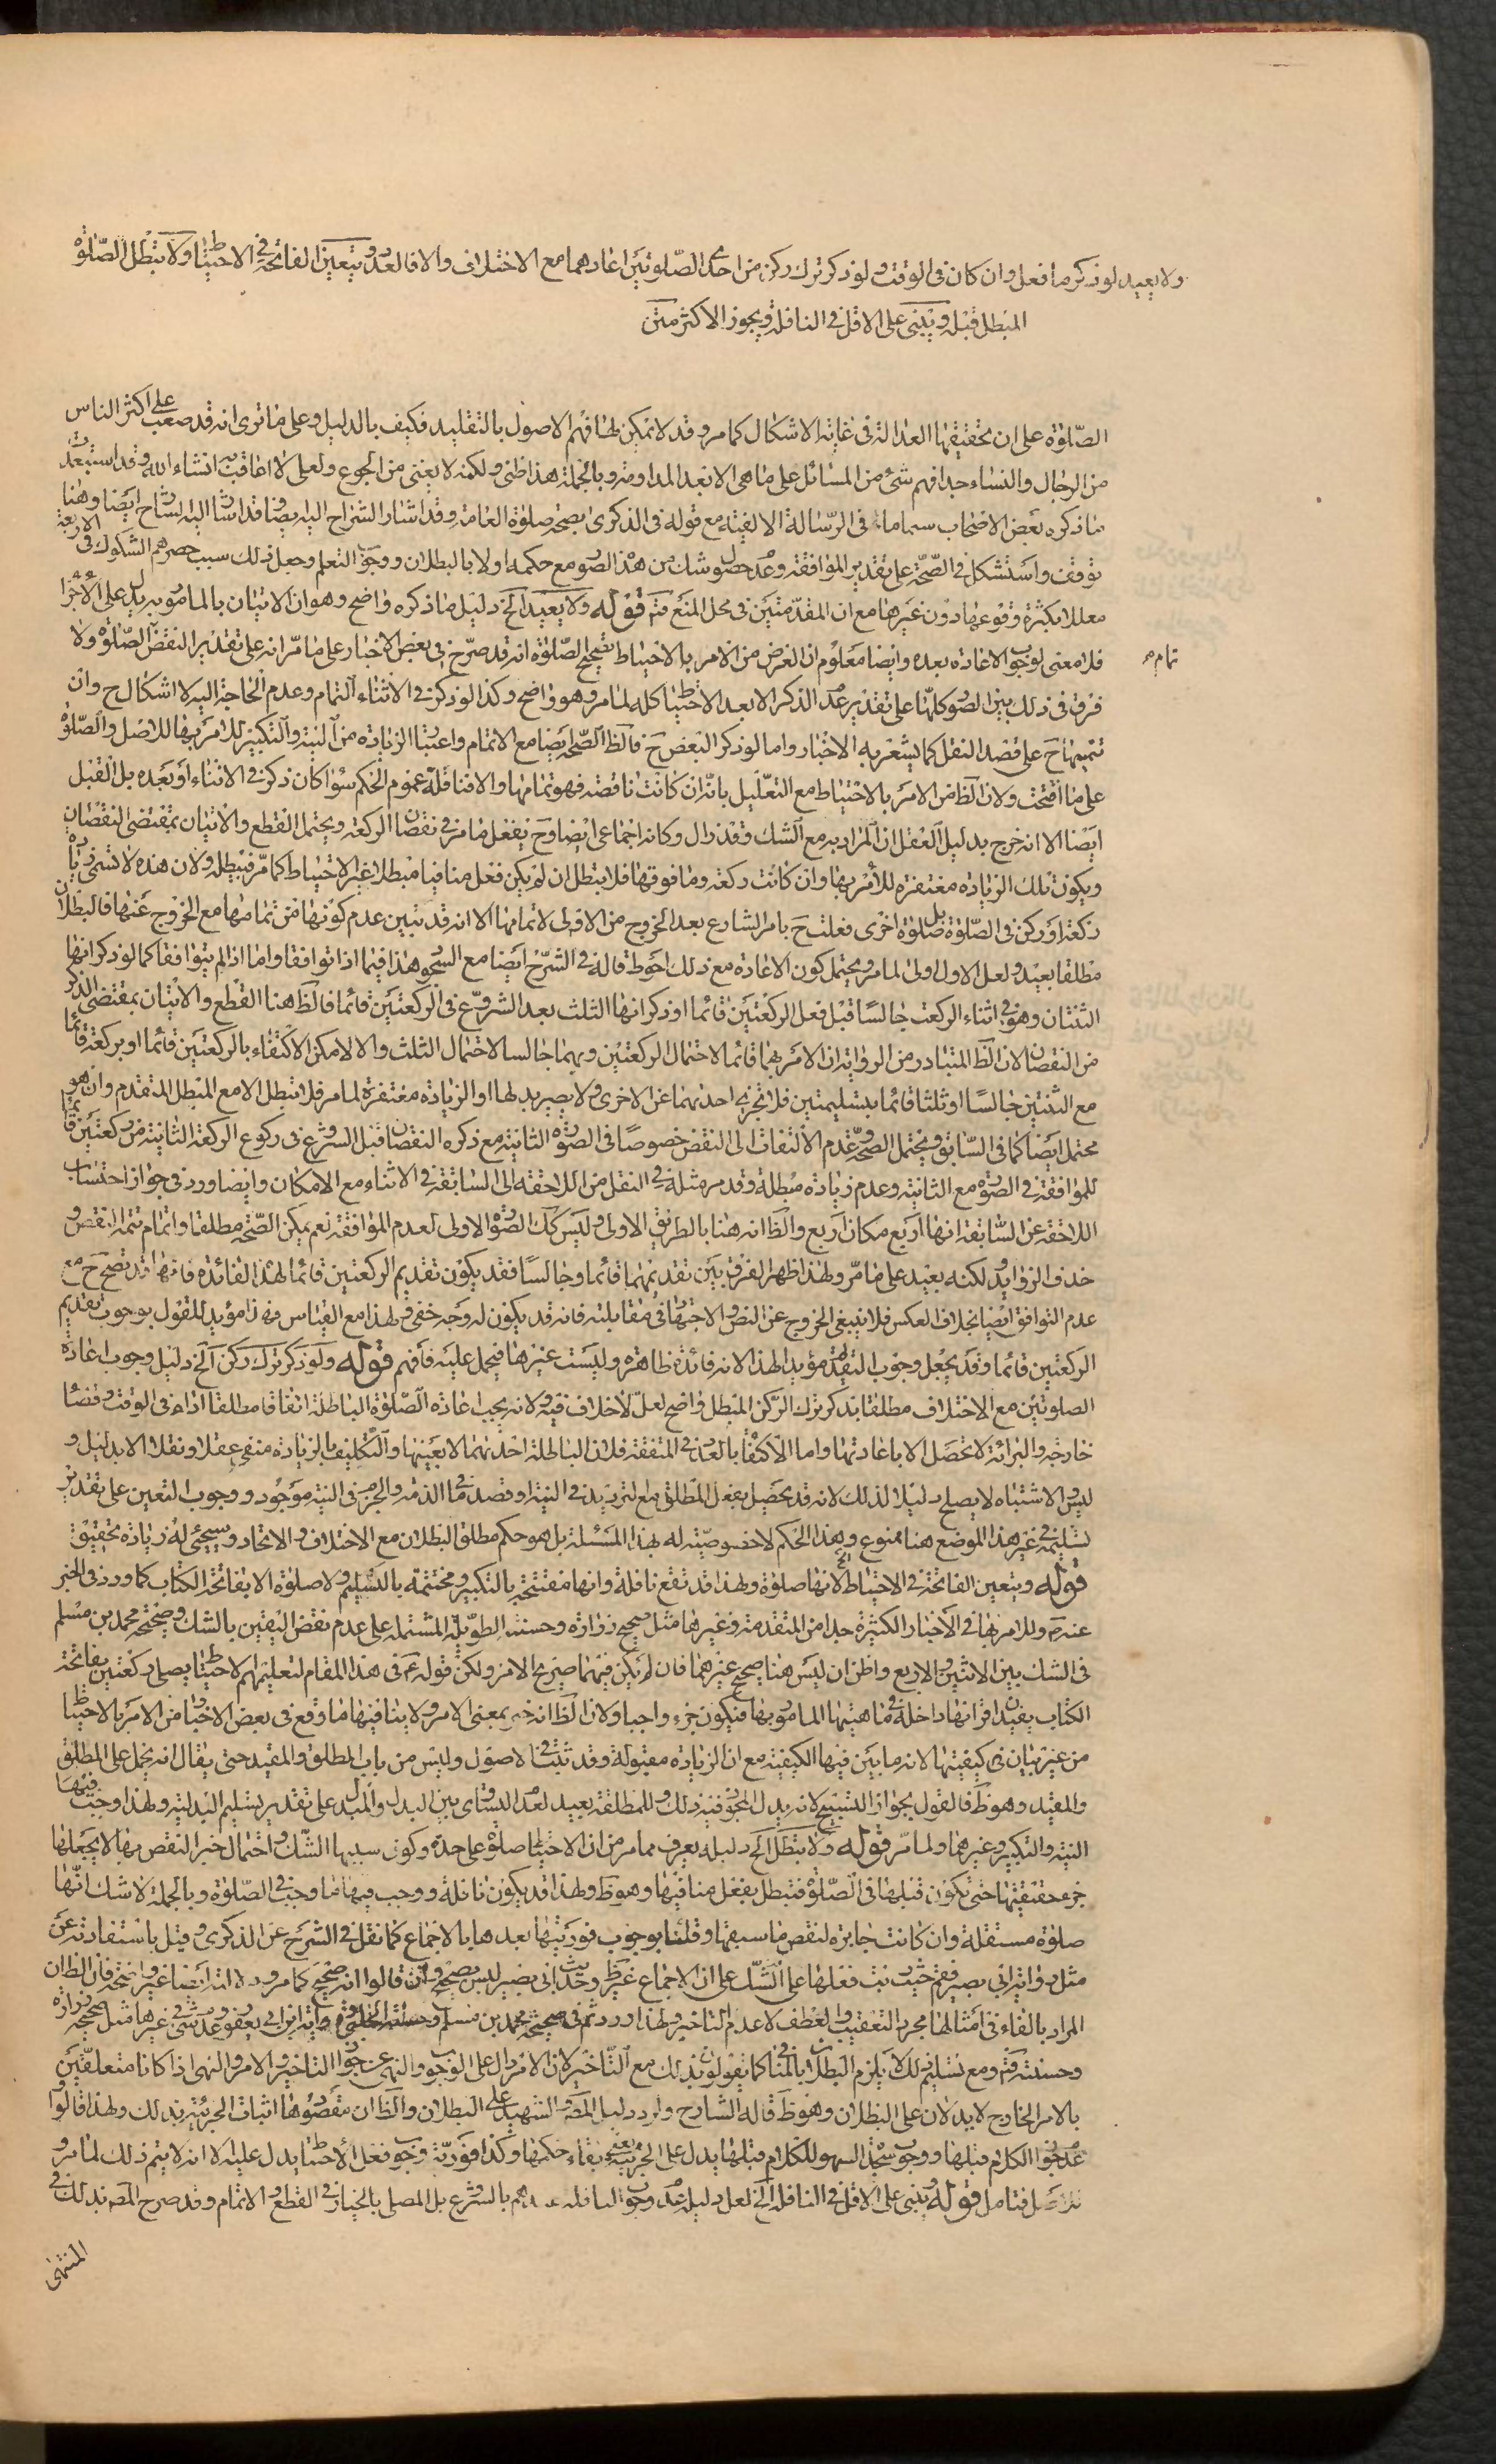 ولا يعيد لو ذكر ما فعل وان كان فى الوقت ولو ذكر ترك ركن من احدى الصّلوتين اعادهما مع الاختلاف والا فالعدد ويتعين الفاتحة فى الاحتياط ولا تبطل الصّلوة
المبطل قبله ويبنى على الاقل فى النافلة ويجوز الاكثر متن
الصّلوة على ان تحقيقها العدالة فى غاية الاشكال كما مر وقد لا تمكن لها فهم الاصول بالتقليد فكيف بالدليل وعلى ما ترى انه قد صعب على اكثر الناس
من الرجال والنساء جدا فهم شئ من المسائل على ما هى الا بعد المداومة وبالجملة هذا ظنى ولكنه لا يغنى من الجوع ولعلى لا اعاقب به انشاء الله وقد استبعد
ما ذكره بعض الاصحاب سيما فى الرّسالة الالفية مع قوله فى الذكرى بصحة صلوة العامة وقد اشار الشراح اليه ايضا وهنا
توقف واستشكل فى الصّحّة على تقدير الموافقة وعدم حصول شك من هذه الصور مع حكمه اولا بالبطلان ووجوب التعلم وجعل ذلك سبب حصرهم الشكوك فى الاربعة
معللا بكثرة وقوعها دون غيرها مع ان المقدّمتين فى محل المنع فتم قوله ولا يعيد الخ دليل ما ذكره واضح وهو ان الاتيان بالمامور به يدل على الاجزا
فلا معنى لوجوب الاعادة بعده وايضا معلوم ان الغرض من الامر بالاحتياط تصحيح الصّلوة انه قد صرّح فى بعض الاخبار على ما مرّ انه على تقدير النقص الصّلوة ولا
تمام م
فرق فى ذلك بين الصور كلّها على تقدير عدم الذكر الا بعد الاحتياط كله لما مر وهو واضح وكذا لو ذكر فى الاثناء التمام وعدم الحاجة اليه لا اشكال ح وان
تتميمها ح على قصد النفل كما يشعر به الاخبار واما لو ذكر البعض ح فالظ الصّحة ايضا مع الاتمام واعتبار الزيادة من النية والتكبير للامر بها للاصل والصّلوة
على ما افتتحت ولان الظ من الامر بالاحتياط مع التعّليل بانّه ان كانت ناقصة فهو تمامها والا فنافلة عموم الحكم سوا كان ذكر فى الاثناء او بعده بل القبل
ايضا الا انه خرج بدليل العقل ان المراد به مع الشك وقد زال وكانه اجماعى ايضا وح يفعل ما مر فى نقصان الركعة ويحتمل القطع والاتيان بمقتضى النقصان
ويكون تلك الزيادة مغتفرة للامر بها وان كانت ركعة وما فوقها فلا يبطل ان لم يكن فعل منافيا مبطلا غير الاحتياط كما مرّ فيبطل ولان هذه لا تسمى زيادة
ركعة او ركن فى الصّلوة بل صلوة اخرى فعلت ح بامر الشارع بعد الخروج من الاولى لاتمامها الا انه قد تبين عدم كونها من تمامها مع الخروج عنها فالبطلان
مطلقا بعيد ولعل الاول اولى لما مر ويحتمل كون الاعادة مع ذلك احوط قاله فى الشرّح ايضا مع السهو هذا فيما اذا توافقا واما اذا لم يتوافقا كما لو ذكر انها
الثنتان وهو فى اثناء الركعة جالسًا قبل فعل الركعتين قائما او ذكر انها الثلث بعد الشروع فى الركعتين قائما فالظ هنا القطع والاتيان بمقتضى الذكر
من النقصان لان الظ المتبادر من الرواية ان الامر بهما قائما لاحتمال الركعتين وبهما جالسا لاحتمال الثلث والا لامكن الاكتفاء بالركعتين قائما او بركعة قائما
مع الثنتين جالسًا او ثلثا قائما بتسليمتين فلا تجزى احدهما عن الاخرى ولا يصير بدلها او الزيادة مغتفرة لما مر فلا تبطل الا مع المبطل المتقدم وانه هو
محتمل ايضا كما فى السّابق ويحتمل الصحة وعدم الالتفات الى النقض خصوصًا فى الصورة الثانية مع ذكره النقصان قبل الشروع فى ركوع الركعة الثانية من ركعتين قائما
للموافقة فى الصورة مع الثانية وعدم زيادة مبطلة وقد مر مثله فى النقل من اللاحقة الى السّابقة فى الاثناء مع الامكان وايضا ورد فى جواز احتساب
اللاحقة عن السّابقة انها اربع مكان اربع والظ انه هنا بالطريق الاولى وليس كك الصورة الاولى لعدم الموافقة نعم يمكن الصّحة مطلقا واتمام تتمة النقص و
حذف الزوايد ولكنه بعيد على ما مرّ ولهذا ظهر الفرق بين تقديمهما قائما وجالسًا فقد يكون تقديم الركعتين قائما لهذا الفائدة فانها قد تصح ح مع
عدم التوافق ايضا بخلاف العكس فلا ينبغى الخروج عن النص والاجتهاد فى مقابلته فانه قد يكون له وجه خفى ولهذا مع القياس فهذا مؤيد للقول بوجوب تقديم
الركعتين قائما وقد يجعل وجوب التقديم مؤيدا لهذا لانه فائدة ظاهرة وليست غيرها فيحمل عليه فافهم قوله ولو ذكر ترك ركن الخ دليل وجوب اعادة
الصلوتين مع الاختلاف مطلقا بذكر ترك الرّكن المبطل واضح لعلّ لاخلاف فيه ولانه يجب اعادة الصّلوة الباطلة اتفاقا مطلقا اداء فى الوقت وقضا
خارجه والبرائة لا تحصل الا باعادتهما واما الاكتفا بالعدد فى المتفقة فلان الباطلة احدهما لا بعينها والتكليف بالزيادة منفى عقلا ونقلا الا بدليل و
ليس الاشتباه لا يصلح دليلا لذلك لانه قد يحصل بفعل المطلق مع الترديد فى النية او قصد ما فى الذمة والجزم فى النية موجود ووجوب التعين على تقدير
تسليمه فى غير هذا الموضع هنا ممنوع وهذا الحكم لا خصوصيّة له بهذا المسئلة بل هو حكم مطلق البطلان مع الاختلاف والاتحاد وسيجئ له زيادة تحقيق
قوله ويتعين الفاتحة فى الاحتياط الخ لانها صلوة ولهذا قد تقع نافلة وانها مفتتحة بالتكبير ومختتمة بالتسليم ولا صلوة الا بفاتحة الكتاب كما ورد فى الخبر
عنه ص وللامر بها فى الاخبار الكثيرة جدا من المتقدمة وغيرها مثل صحيح زرارة وحسنته الطويلة المشتملة على عدم نقض اليقين بالشك وصحيحة محمد بن مسلم
فى الشك بين الاثنين والاربع واظن ان ليس هنا صحيح غيرهما فان لم يكن فيهما صريح الامر ولكن قوله ع فى هذا المقام لتعليمهم الاحتياط يصلى ركعتين بفاتحة
الكتاب يفيد انها داخلة فى ماهيتها المامور بها فيكون جزء واجبا ولان الظ انه خبر بمعنى الامر ولا ينافيها ما وقع فى بعض الاخبار من الامر بالاحتياط
من غير بيان فى كيفيتها لانه ما بين فيها الكيفية مع ان الزيادة مقبولة وقد ثبت فى الاصول وليس من باب المطلق والمقيد حتى يقال انه يحمل على المطلق
والمقيد وهو ظ فالقول بجواز التسبيح لانه بدل المجوز فيه ذلك وللمطلقة بعيد لعدم التساوى بين البدل والمبدل على تقدير تسليم البدلية ولهذا وجب فيها
النية والتكبير وغيرهما ولما مرّ قوله ولا تبطل الخ دليله يعرف مما مر من ان الاحتياط صلوة على حدة وكون سببها الشّك واحتمال جبر النقص بها لا يجعلها
جزء حقيقيا حتى يكون قبلها فى الصّلوة فتبطل بفعل منافيها وهو ظ ولهذا قد يكون نافلة ووجب فيها ما وجب فى الصّلوة وبالجملة لا شك انّها
صلوة مستقلة وان كانت جابرة لنقص ما سبقها وقلنا بوجوب فوريتها بعدها بالاجماع كما نقل فى الشرح عن الذكرى وقيل باستفادته عن
مثل رواية ابى بصير فقم حيث رتب فعلها على الشّك على ان الاجماع غير ظ وحديث ابى بصير ليس بصحيح وان قالوا انه صحيح كما مر ودلالته ايضا غير واضحة فان الظ ان
المراد بالفاء فى امثالها مجرد التعقيب والعطف لا عدم التاخير ولهذا ورد ثم فى صحيحة محمد بن مسلم وحسنة الحلبى ورواية ابن ابى يعفور وعدم شئ فى غيرها مثل صحيحة زرارة
وحسنته فتم ومع تسليم ذلك لا يلزم البطلان بالمنافى كما يقولون بذلك مع التّاخير لان الامر دال على الوجوب والنهى عن جواز التاخير والامر والنهى اذا كانا متعلقين
بالامر الخارج لا يدلان على البطلان وهو ظ قاله الشارح واورد دليل المصّ والشهيد على البطلان والظ ان مقصودها اثبات الجزئية بذلك ولهذا قالوا
عدم جواز الكلام قبلها ووجوب سجدة السهو للكلام قبلها يدل على الجزئية يعنى بقاء حكمها وكذا فورية وجوب فعل الاحتياط يدل عليه الا انه لا يتم ذلك لما مر و
للاصل فتامل قوله ويبنى على الاقل فى النافلة الخ لعل دليله عدم وجوب النافلة عندهم بالشروع بل المصلى بالخيار فى القطع والاتمام وقد صرح المصّ بذلك فى
المنتهى